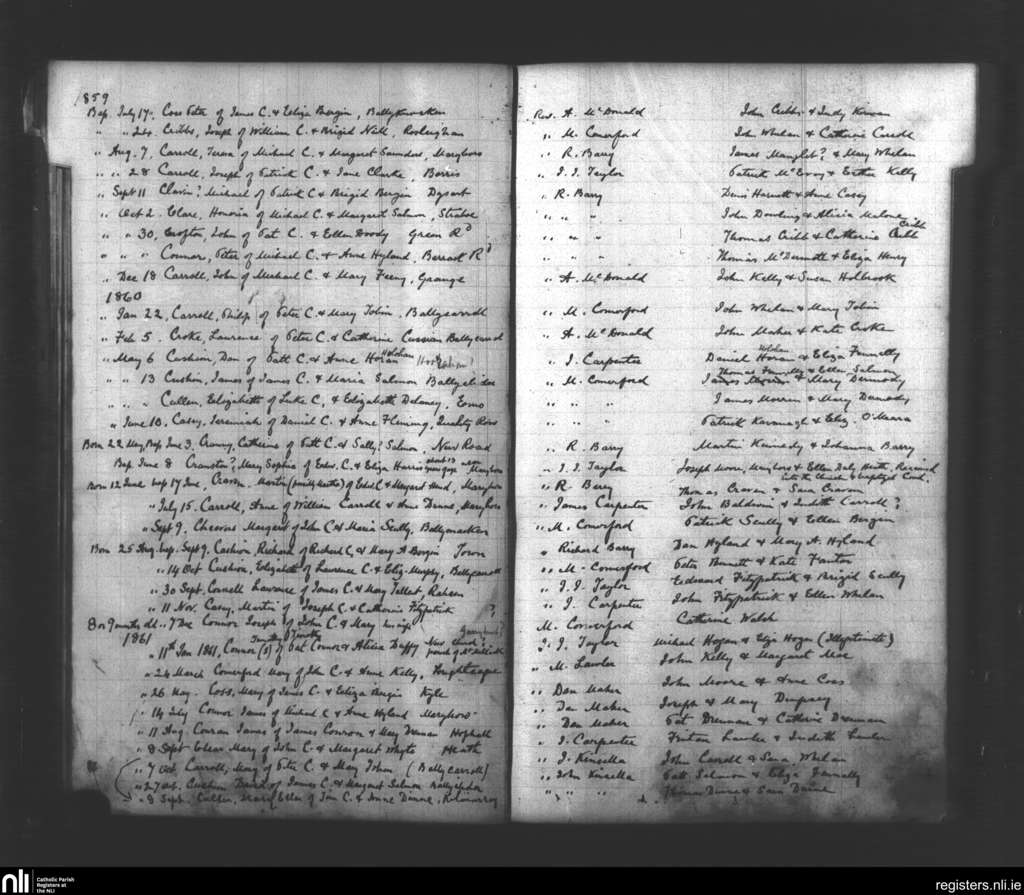 1859
Bap. July 17. Coss Peter of James C. & Eliza Bergin, Ballyknocken Rev. A. McDonald John Cribbs & Judy Kirwan
" " 24. Cribbs, Joseph of William C. & Brigid Neill, Rosleighan " M. Comerford John Whelan & Catherine Carroll
" Aug. 7, Carroll, Teresa of Michael C. & Margaret Saunders, Maryboro " R. Barry James & Mary Whelan
" " 28 Carroll, Joseph of Patrick C. & Jane Clarke, Borris " J. J. Taylor Patrick McEvoy & Esther Kelly
" Sept 11 Clavin? Michael of Patrick C & Brigid Bergin Dysart " R. Barry Denis Harnett & Anne Casey
" Oct 2. Clare, Honoria of Michael C. & Margaret Salmon, Straboe " " " John Dowling & Alicia Malone
" " 30, Crofton, John of Pat C. & Ellen Doody Green Rd " " " Thomas Cribb & Catherine Cribb
" " " Connor, Peter of Michael C. & Anne Hyland, Barrack Rd " " " Thomas McDermott & Eliza Henry
" Dec 18 Carroll, John of Michael C. & Mary Feeny, Grange " A. McDonald John Kelly & Susan Holbrook
1860
" Jan 22, Carroll, Philip of Peter C. & Mary Tobin, Ballycarroll " M. Comerford John Whelan & Mary Tobin
" Feb 5. Croke, Laurence of Peter C. & Catherine Cussian " A. McDonald John Maher & Kate Croke
" May 6 Cushion, Dan of Patt C. & Anne Horan Wholohan " J. Carpenter Daniel Horan Wholohan & Eliza Funnelly
" " 13 Cushin, James of James C. & Maria Salmon Ballyclider " M. Comerford Thomas Funnelly & Ellen Salmon James Morrin & Mary Dermody
" " " Cullen, Elizabeth of Luke C, & Elizabeth Delaney, Esmo " " " James Morrin & Mary Dermody
" June 10. Casey, Jeremiah of Daniel C. & Anne Fleming, Quality Row " " " Patrick Kavanagh & Eliz. O'Meara
Born 22 May, Bap. June 3. Cranny, Catherine of Patt C. & Sally? Salmon, New Road " R. Barry Martin Kennedy & Johanna Barry
Bap. June 8 Cranston?, Mary Sophia of Edw. C. & Eliza Harris about 13 years of age Maryboro " J. J. Taylor Joseph Moore, Maryboro & Ellen Daly Heath, Received into the Church & baptized Cond.
Born 12 June bap 17 June, Craven. Martin of Edwd C & Margaret Hand, Maryboro " R. Barry Thomas Craven & Sara Craven
" July 15. Carroll, Anne of William Carroll & Anne Dunne, Maryboro " James Carpenter John Baldwin & Judith Carroll?
" Sept 9, Cheevers Margaret of John C & Maria Scully, Ballymacken " M. Comerford Patrick Scully & Ellen Bergin
Born 25 Aug. bap. Sept 9. Cashion Richard of Richard C. & Mary A Bergin Town " Richard Barry Dan Hyland & Mary A. Hyland
" 14 Oct Cushion, Elizabeth of Laurence C. & Eliz. Murphy, Ballycarroll " M. Comerford Peter Bennett & Kate Fenton
" 30 Sept. Connell Laurence of James C. & Mary Tallent, Raheen " J. J. Taylor Edward Fitzpatrick & Brigid Scully
" 11 Nov. Casey, Martin of Joseph C. & Catherine Fitzpatrick ? " J. Carpenter John Fitzpatrick & Ellen Whelan
8 or 9 months old " 7 Dec Connor Joseph of John C. & Mary M. Comerford Catherine Walsh
1861
" 11th Jan 1861, Connor of Pat Connor & Alicia Duffy New J. J. Taylor Michael Hogan & Eliza Hogan (Illegitimate)
" 24 March Comerford Mary of John C. & Anne Kelly, " M. Lawler John Kelly & Margaret Mac
" 26 May. Coss, Mary of James C. & Eliza Bergin Kyle " Dan Maher John Moore & Anne Coss
" 14 July Connor James of Michael C & Anne Hyland Maryboro " Dan Maher Joseph & Mary Dempsey
" 11 Aug. Conran James of James Conron & Mary Drennan " Dan Maher Pat Drennan & Catherine Drennan
" 8 Sept Mary of John C. & Margaret Whyte Heath " J. Carpenter Fintan Lawlor & Judith Lawlor
" 7 Oct. Carroll, Mary of Peter C. & Mary Tobin (Ballycarroll) " J. Kinsella John Carroll & Sara Whelan
" 27 Oct. Cushin David of James C. & Margaret Salmon " John Kinsella Patt Salmon & Eliza
" 8 Sept. Cullen, Ellen of C. & Anne Dunne, " " " Thomas Dunne & Sara Dunne
nli Catholic Parish Registers at the NLI
registers.nli.ie